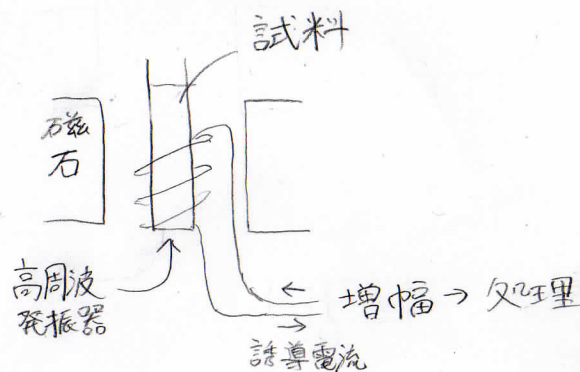 試料
磁
石
高周波
発振器
増幅→処理
誘導電流